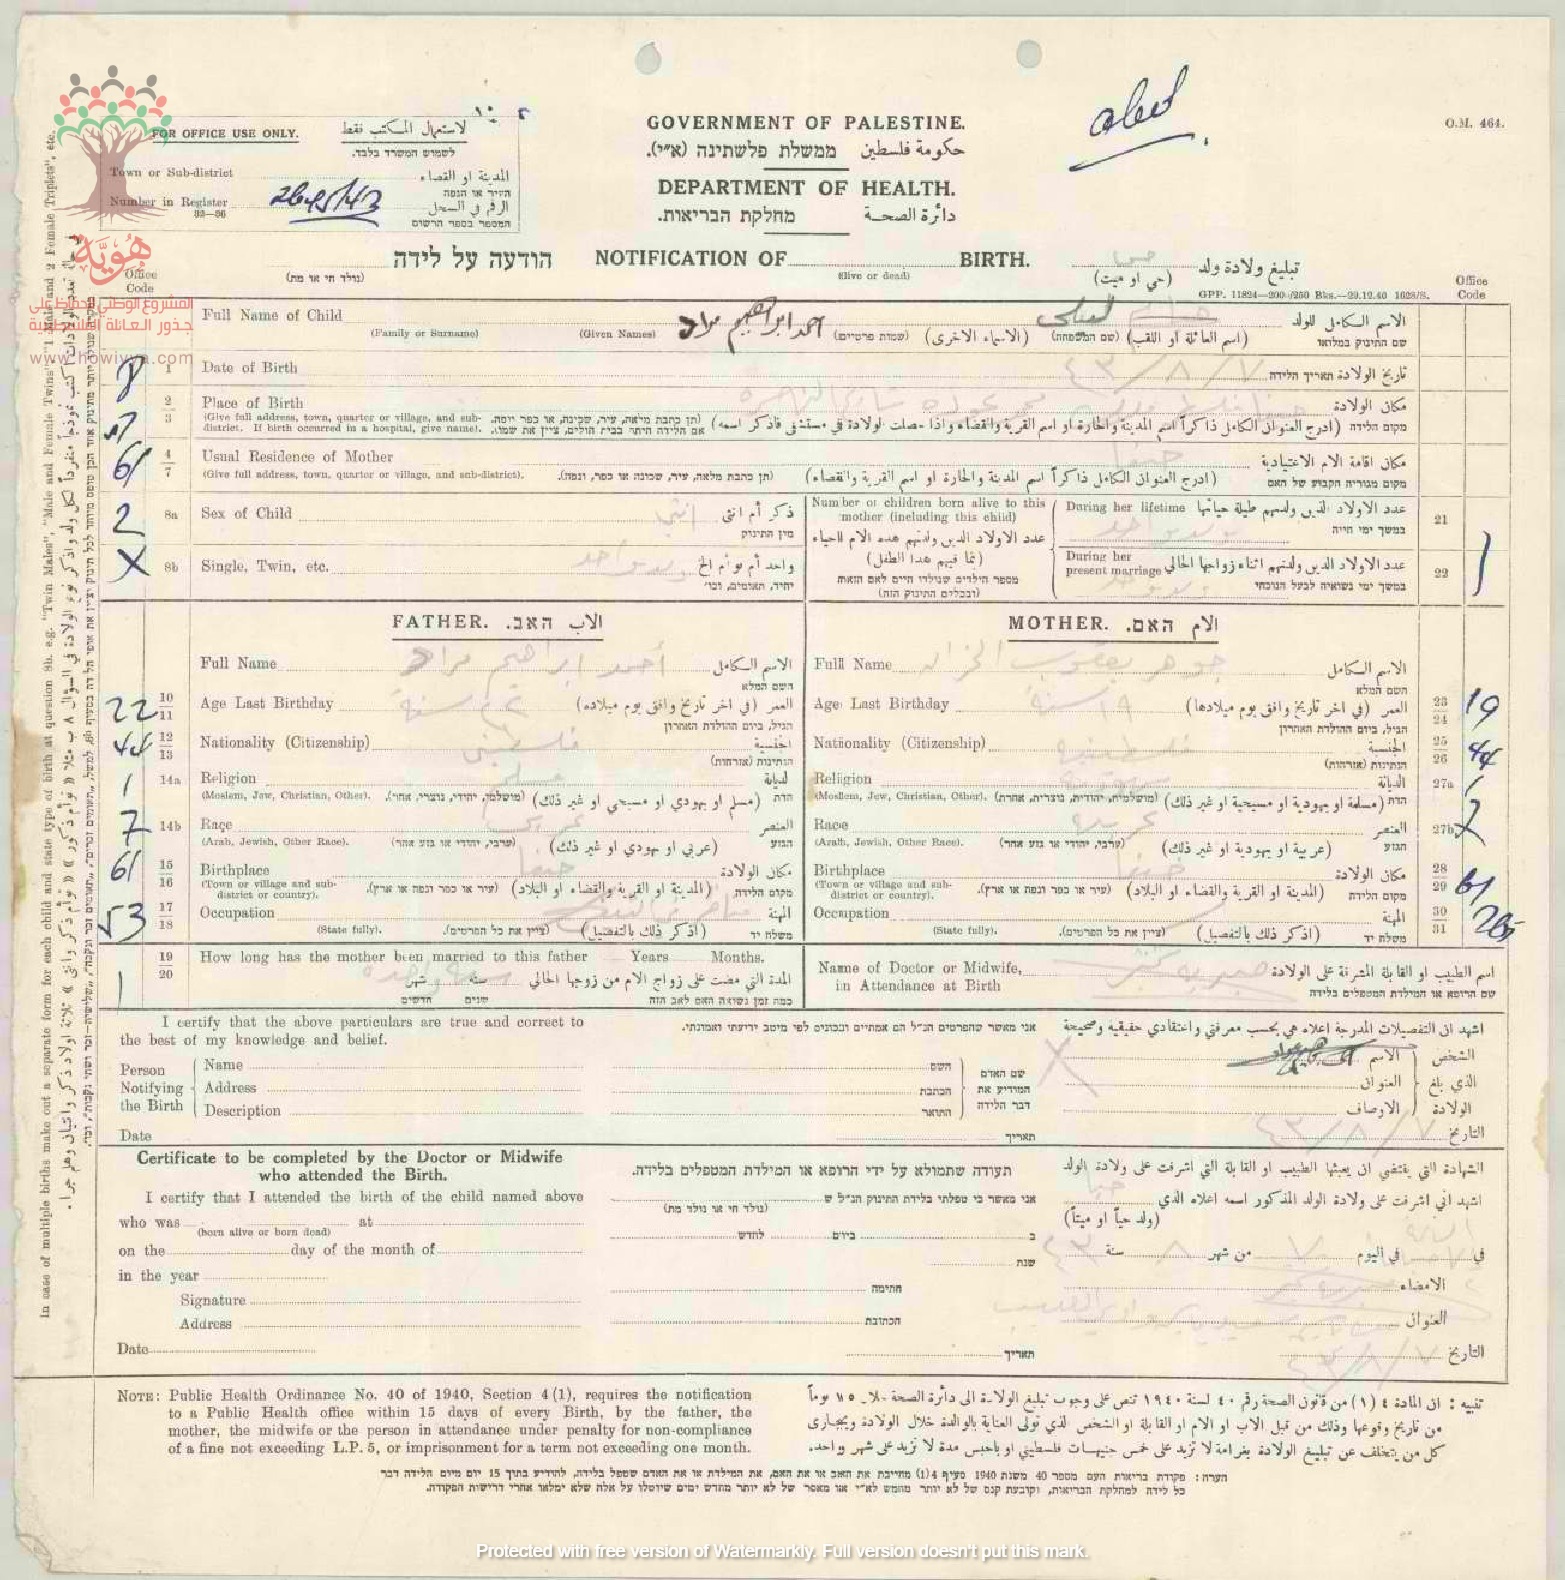 O.M. 464.
FOR OFFICE USE ONLY. لاستعمال المكتب فقط
לשמוש המשרד בלבד.
Town or Sub-district المدينة او القضاء
העיר או הנפה
Number in Register الرقم في السجل
המספר בספר הרשום
GOVERNMENT OF PALESTINE.
ממשלת פלשתינה (א״י). حكومة فلسطين
DEPARTMENT OF HEALTH.
מחלקת הבריאות. دائرة الصحة
הודעה על לידה NOTIFICATION OF BIRTH. تبليغ ولادة ولد
(נולד חי או מת) (alive or dead) (حي او ميت)
GPP. 11824—200/250 Bks.—29.12.40 1628/S.
Office Code
Office Code
هُوِيَّة
المشروع الوطني للحفاظ على
جذور العائلة الفلسطينية
www.howiyya.com
Full Name of Child احمد ابراهيم مراد الاسم الكامل للولد
(Family or Surname) (Given Names) (שמות פרטיים) (الاسماء الاخرى) (שם המשפחה) (اسم العائلة او اللقب) שם התינוק במלואו
8 1 Date of Birth ٤٣/٨/٧ תאריך הלידה تاريخ الولادة
2/3 Place of Birth مكان الولادة
(Give full address, town, quarter or village, and sub-district. If birth occurred in a hospital, give name). (תן כתבת מלאה, עיר, שכונה, או כפר ונפה. אם הלידה היתה בבית חולים, ציין את שמו). (ادرج العنوان الكامل ذاكراً اسم المدينة والحارة او اسم القرية والقضاء واذا حصلت الولادة في مستشفى فاذكر اسمه) מקום הלידה
61 4/7 Usual Residence of Mother حيفا مكان اقامة الام الاعتيادية
(Give full address, town, quarter or village, and sub-district). (תן כתבת מלאה, עיר, שכונה או כפר, ונפה). (ادرج العنوان الكامل ذاكراً اسم المدينة والحارة او اسم القرية والقضاء) מקום מגוריה הקבוע של האם
2 8a Sex of Child انثى ذكر أم انثى
מין התינוק
X 8b Single, Twin, etc. واحد أم توأم الخ
יחיד, תאומים, וכו׳
Number of children born alive to this mother (including this child)
عدد الاولاد الذين ولدتهم هذه الام احياء
(بما فيهم هذا الطفل)
מספר הילדים שנולדו חיים לאם הזאת
(ובכלל זה התינוק הזה)
During her lifetime عدد الاولاد الذين ولدتهم طيلة حياتها 21
במשך ימי חייה
During her present marriage عدد الاولاد الذين ولدتهم اثناء زواجها الحالي 22
במשך ימי נשואיה לבעל הנוכחי
FATHER. האב. الاب
Full Name أحمد ابراهيم مراد الاسم الكامل
השם המלא
22 10/11 Age Last Birthday العمر (في اخر تاريخ وافق يوم ميلاده)
הגיל, ביום ההולדת האחרון
44 12/13 Nationality (Citizenship) فلسطيني الجنسية
הנתינות (אזרחות)
1 14a Religion مسلم الديانة
(Moslem, Jew, Christian, Other). (מושלמי, יהודי, נוצרי, אחר). (مسلم او يهودي او مسيحي او غير ذلك) הדת
7 14b Race عربي العنصر
(Arab, Jewish, Other Race). (ערבי, יהודי או גזע אחר) (عربي او يهودي او غير ذلك) הגזע
61 15/16 Birthplace حيفا مكان الولادة
(Town or village and sub-district or country). (עיר או כפר ונפה או ארץ). (المدينة او القرية والقضاء او البلاد) מקום הלידה
53 17/18 Occupation المهنة
(State fully). (ציין את כל הפרטים). (اذكر ذلك بالتفصيل) משלח יד
1 19/20 How long has the mother been married to this father Years Months.
المدة التي مضت على زواج الام من زوجها الحالي سنة شهر
כמה זמן נשואה האם לאב הזה שנים חדשים
MOTHER. האם. الام
Full Name جوهر يعقوب الاسم الكامل
השם המלא
Age Last Birthday ١٩ سنة العمر (في اخر تاريخ وافق يوم ميلادها) 23/24 19
הגיל, ביום ההולדת האחרון
Nationality (Citizenship) فلسطينية الجنسية 25/26 44
הנתינות (אזרחות)
Religion الديانة 27a 1
(Moslem, Jew, Christian, Other). (מושלמית, יהודית, נוצרית, אחרת). (مسلمة او يهودية او مسيحية او غير ذلك) הדת
Race عربية العنصر 27b 7
(Arab, Jewish, Other Race). (ערבי, יהודי או גזע אחר) (عربية او يهودية او غير ذلك) הגזע
Birthplace حيفا مكان الولادة 28/29 61
(Town or village and sub-district or country). (עיר או כפר ונפה או ארץ). (المدينة او القرية والقضاء او البلاد) מקום הלידה
Occupation المهنة 30/31
(State fully). (ציין את כל הפרטים). (اذكر ذلك بالتفصيل) משלח יד
Name of Doctor or Midwife, in Attendance at Birth اسم الطبيب او القابلة المشرفة على الولادة
שם הרופא או המילדת המטפלים בלידה
I certify that the above particulars are true and correct to the best of my knowledge and belief.
אני מאשר שהפרטים הנ״ל הם אמתיים ונכונים לפי מיטב ידיעתי ואמונתי.
اشهد ان التفصيلات المدرجة اعلاه هي بحسب معرفتي واعتقادي حقيقية وصحيحة
Person Notifying the Birth
Name השם الاسم
Address הכתבת العنوان
Description התואר الاوصاف
שם האדם המודיע את דבר הלידה
الشخص الذي بلغ الولادة
Date תאריך ٤٣/٨/٧ التاريخ
Certificate to be completed by the Doctor or Midwife who attended the Birth.
תעודה שתמולא על ידי הרופא או המילדת המטפלים בלידה.
الشهادة التي يقتضي ان يعبئها الطبيب او القابلة التي اشرفت على ولادة الولد
I certify that I attended the birth of the child named above
אני מאשר כי טפלתי בלידת התינוק הנ״ל ש
اشهد اني اشرفت على ولادة الولد المذكور اسمه اعلاه الذي
who was at
(born alive or born dead) (נולד חי או נולד מת) (ولد حياً او ميتاً)
on the day of the month of ב ביום לחדש في في اليوم ٧ من شهر ٨ سنة ٤٣
in the year שנת
Signature החתימה الامضاء
Address הכתובת العنوان
Date תאריך ٤٣/٨/٧ التاريخ
NOTE: Public Health Ordinance No. 40 of 1940, Section 4 (1), requires the notification
to a Public Health office within 15 days of every Birth, by the father, the
mother, the midwife or the person in attendance under penalty for non-compliance
of a fine not exceeding L.P. 5, or imprisonment for a term not exceeding one month.
تنبيه : ان المادة ٤ (١) من قانون الصحة رقم ٤٠ لسنة ١٩٤٠ تنص على وجوب تبليغ الولادة الى دائرة الصحة خلال ١٥ يوماً
من تاريخ وقوعها وذلك من قبل الاب او الام او القابلة او الشخص الذي تولى العناية بالوالدة خلال الولادة ويجازى
كل من يتخلف عن تبليغ الولادة بغرامة لا تزيد على خمس جنيهات فلسطيني او بالحبس مدة لا تزيد على شهر واحد.
הערה: פקודת בריאות העם מספר 40 משנת 1940 סעיף 4(1) מחייבת את האב או את האם, את המילדת או את האדם שטפל בלידה, להודיע בתוך 15 יום מיום הלידה דבר
כל לידה למחלקת הבריאות, וקובעת קנס של לא יותר מחמש לא״י או מאסר של לא יותר מחדש ימים שיוטלו על אלה שלא ימלאו אחרי דרישות הפקודה.
In case of multiple births make out a separate form for each child and state type of birth at question 8b. e.g. "Twin Males", "Male and Female Twins", "1 Male and 2 Female Triplets", etc.
Protected with free version of Watermarkly. Full version doesn't put this mark.